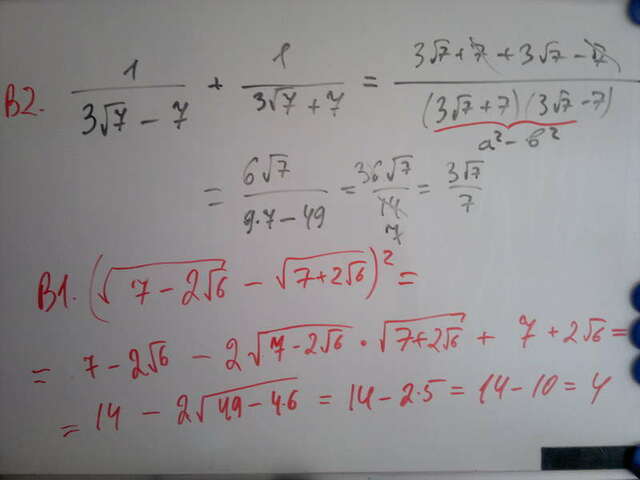 B2. 1/(3√7 - 7) + 1/(3√7 + 7) = (3√7 + 7 + 3√7 - 7)/((3√7 + 7)(3√7 - 7))
a² - b²
= 6√7/(9·7 - 49) = 36√7/14 7 = 3√7/7
B1. (√(7 - 2√6) - √(7 + 2√6))² =
= 7 - 2√6 - 2√(7 - 2√6) · √(7 + 2√6) + 7 + 2√6 =
= 14 - 2√(49 - 4·6) = 14 - 2·5 = 14 - 10 = 4